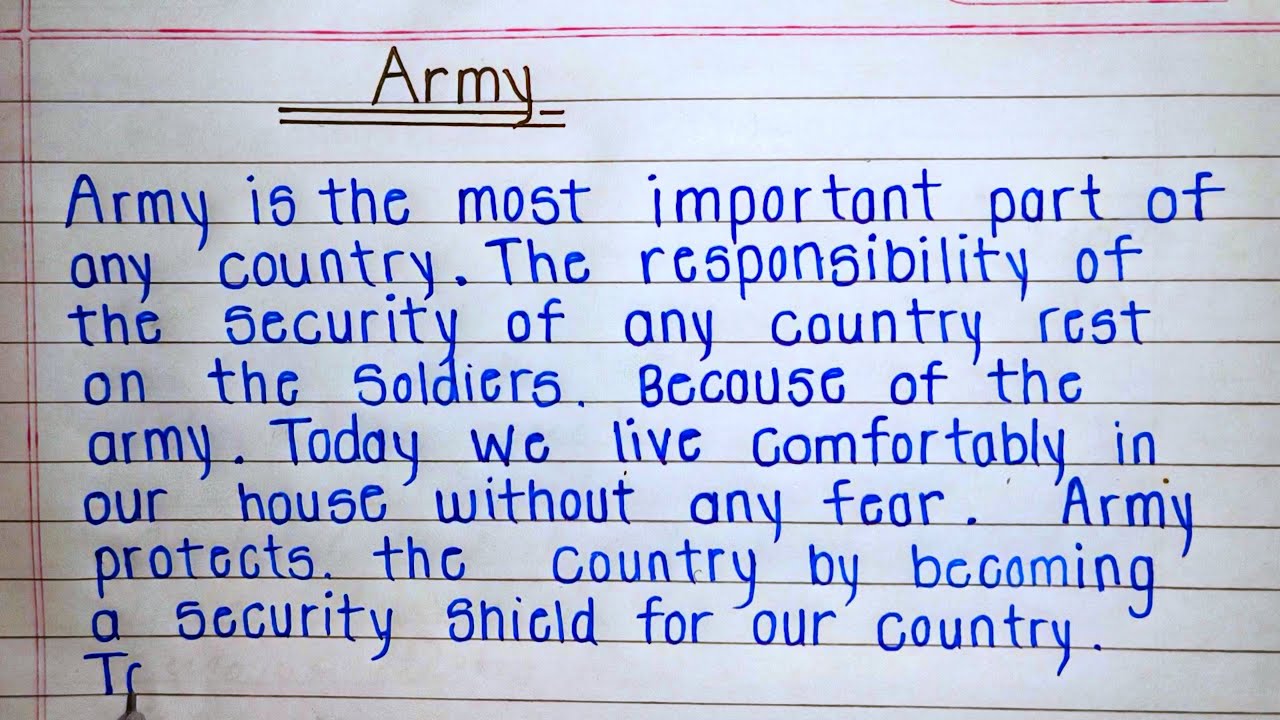 Army
Army is the most important part of
any country. The responsibility of
the security of any country rest
on the soldiers. Because of the
army. Today we live comfortably in
our house without any fear. Army
protects. the country by becoming
a security shield for our country.
Tr